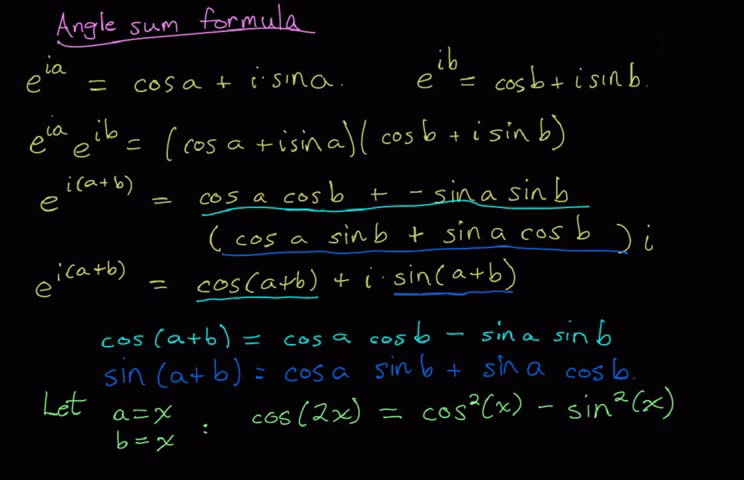 Angle sum formula
e^{ia} = cos a + i · sin a. e^{ib} = cos b + i sin b.
e^{ia} e^{ib} = (cos a + i sin a)(cos b + i sin b)
e^{i(a+b)} = cos a cos b + - sin a sin b
(cos a sin b + sin a cos b) i
e^{i(a+b)} = cos(a+b) + i · sin(a+b)
cos(a+b) = cos a cos b - sin a sin b
sin(a+b) = cos a sin b + sin a cos b.
Let a = x : cos(2x) = cos²(x) - sin²(x)
b = x